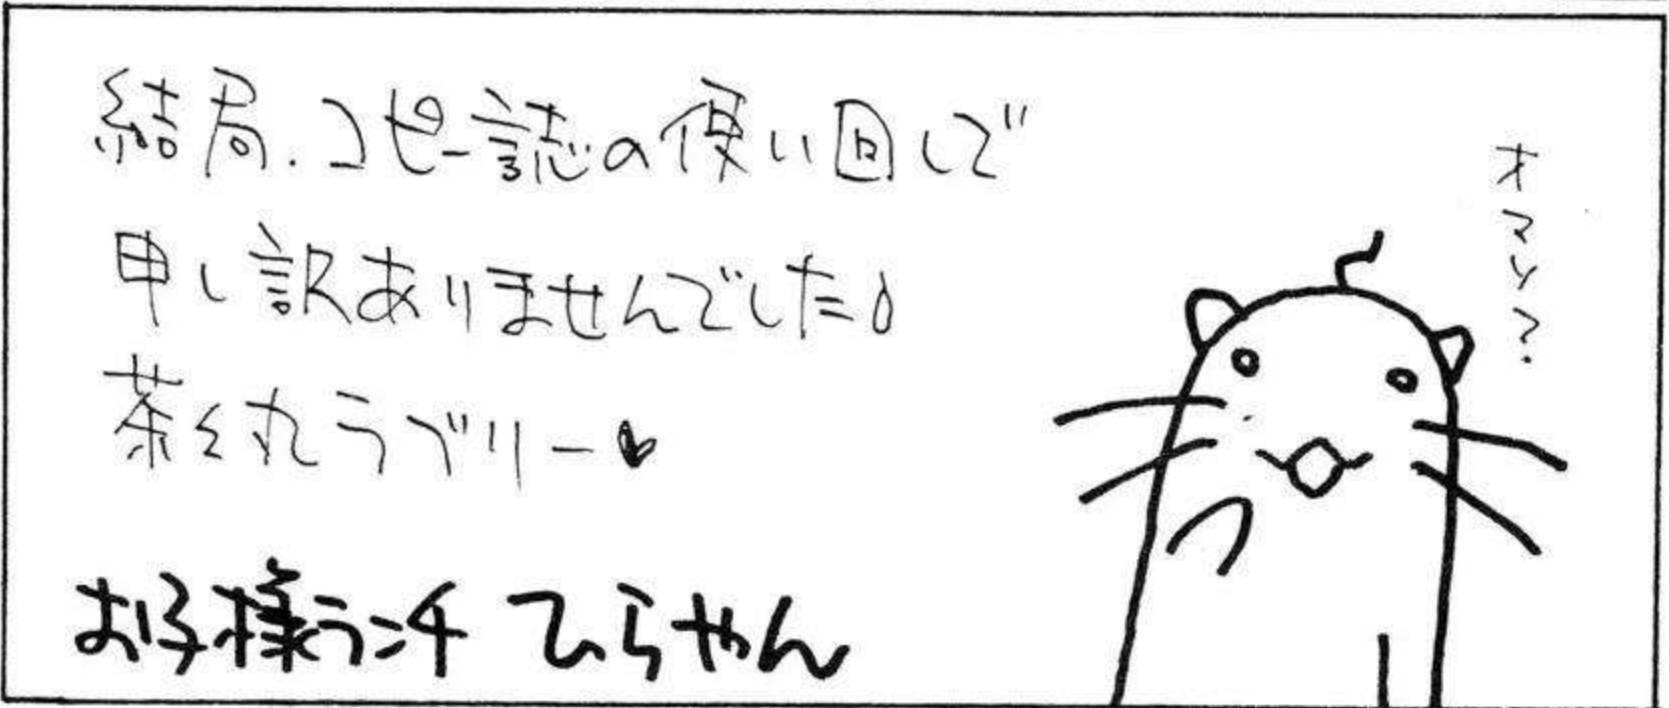 結局、コピー誌の使い回しで
申し訳ありませんでした。
茶々丸ラブリー♥
お子様ランチ ひらやん
オマツ?